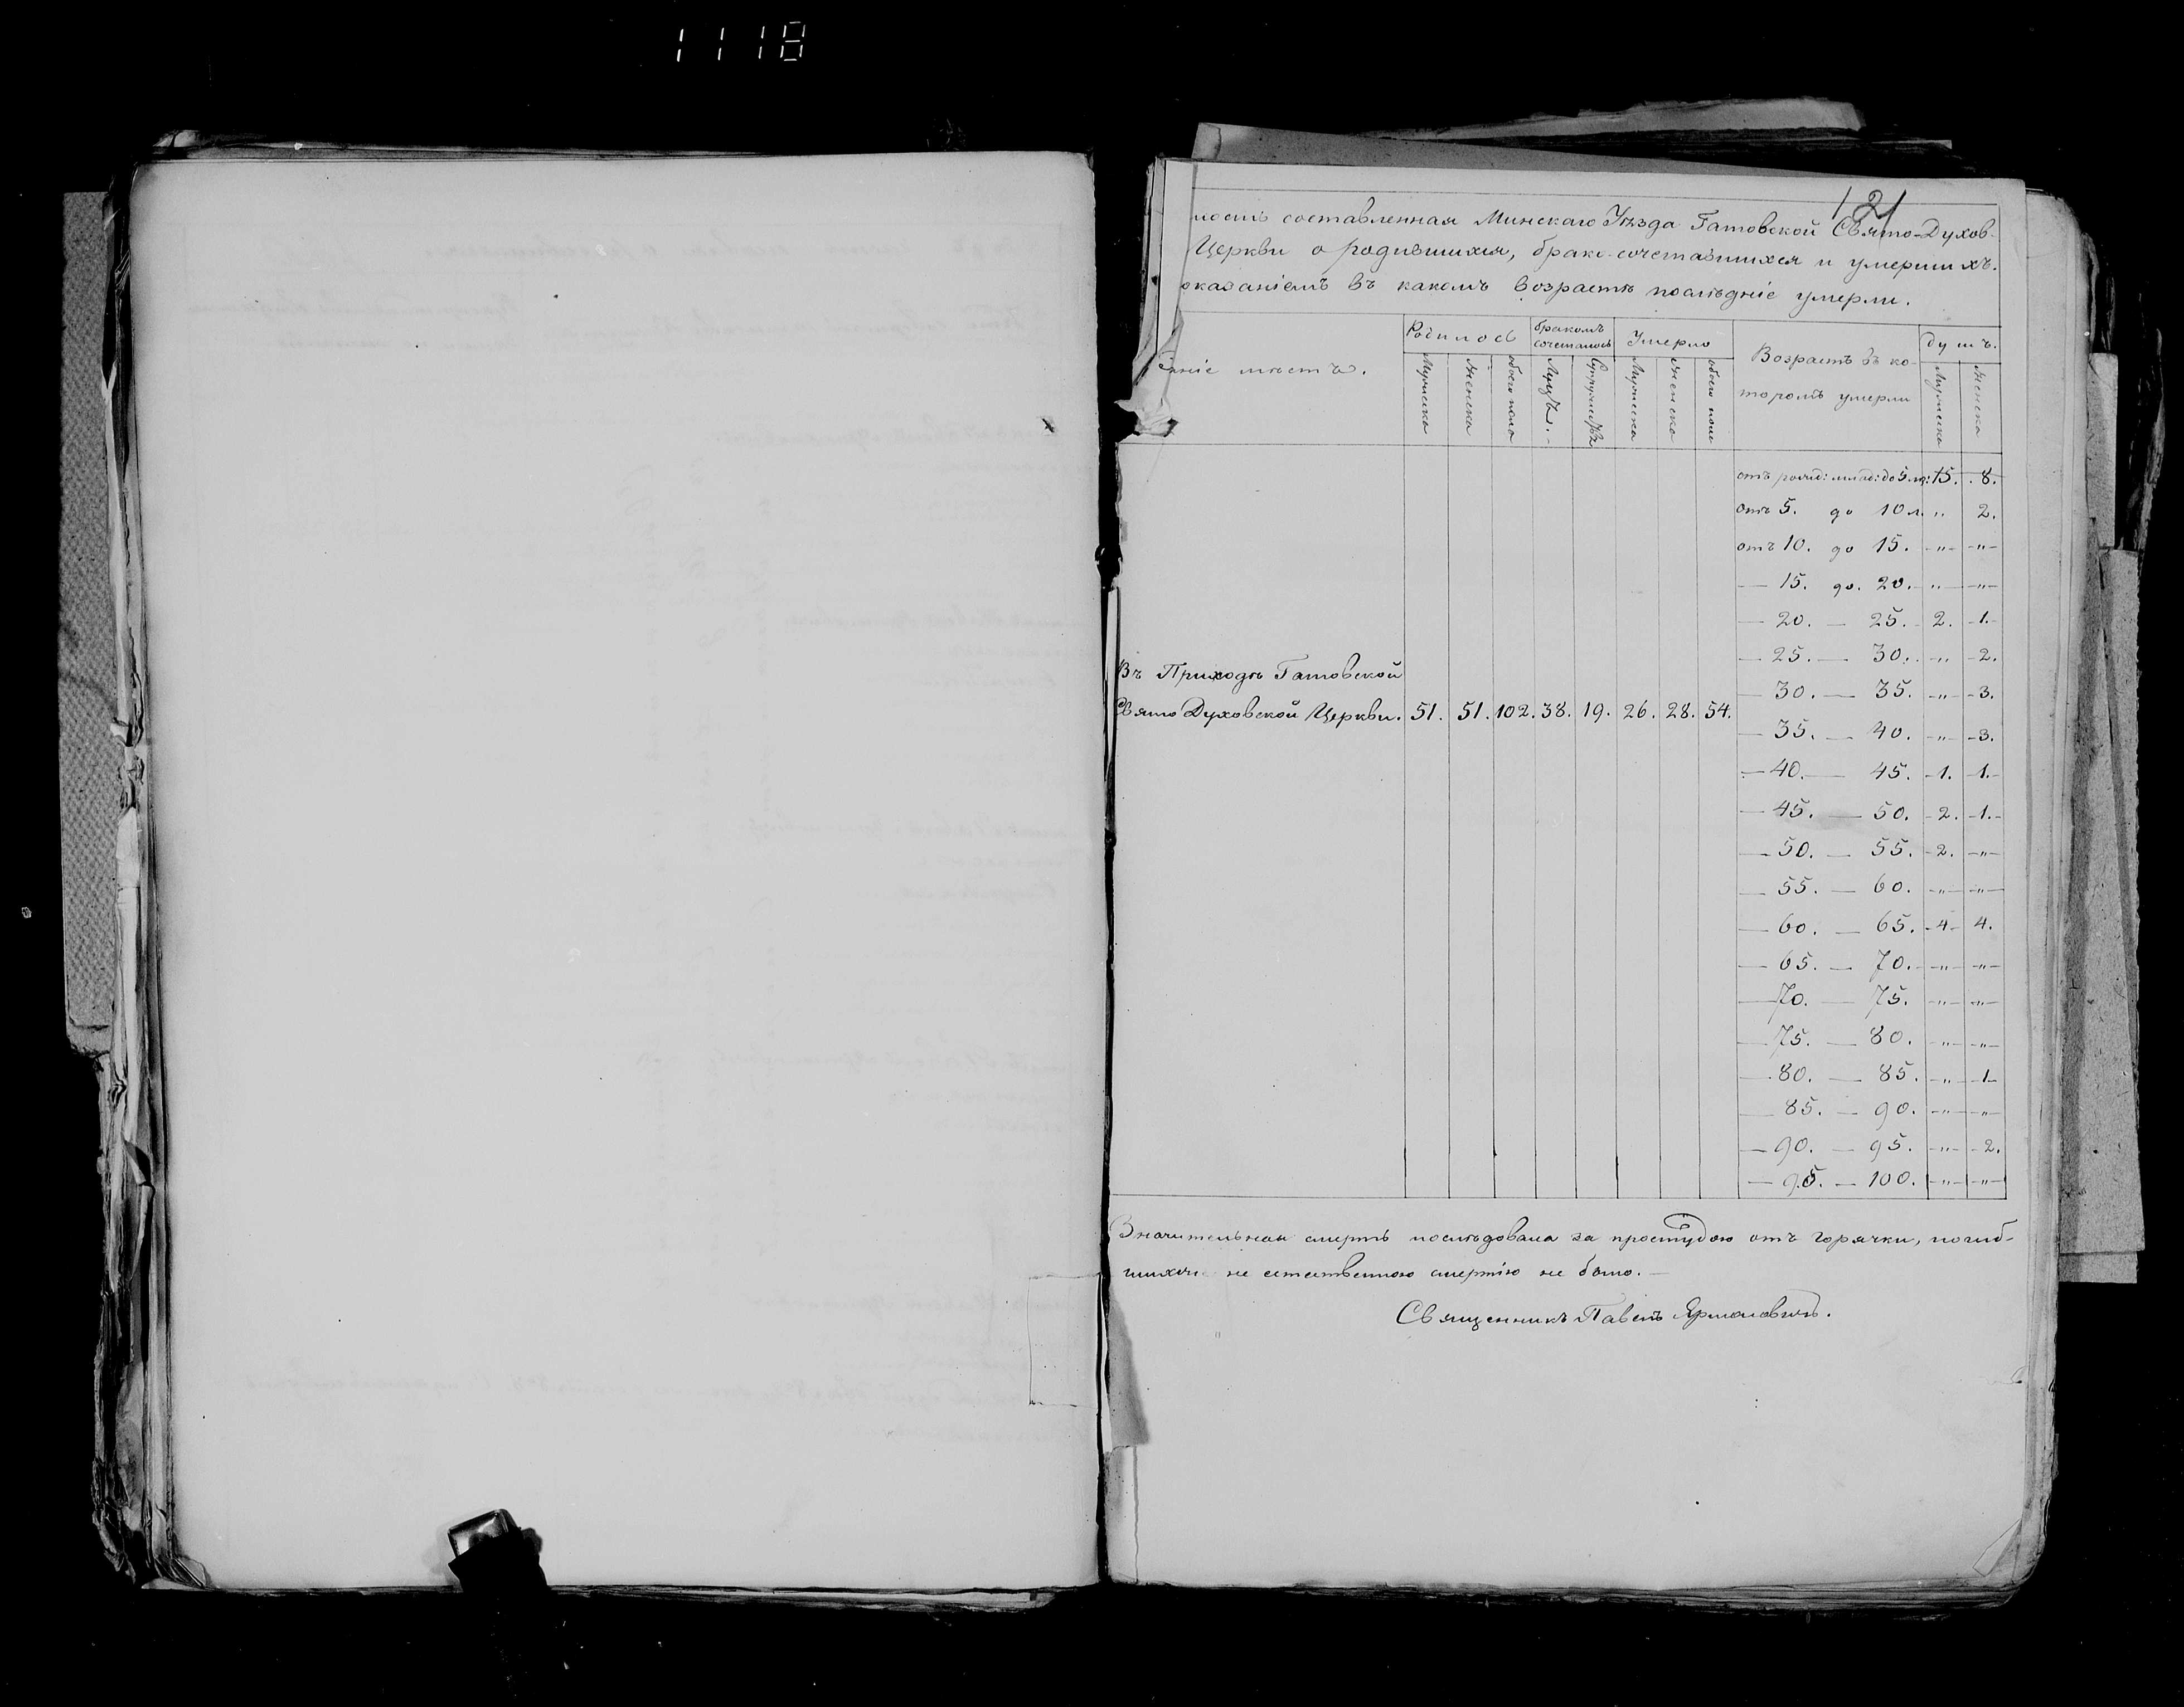 1118
121
ность составленная Минскаго Уѣзда Гатовской Свято-Духов-
Церкви о родившихся, брако-сочетавшихся и умерших ъ.
оказаніемъ въ какомъ возрастѣ послѣдніе умерли.
ваніе мѣстъ.
Родилось
бракомъ сочеталось
Умерло
Возрастъ въ ко-
торомъ умерли
душъ.
Мужеска
Женска
обоего пола
Мужеска
Женска
обоего пола
Мужеска
Женска
отъ рожд: млад: до 5 л: 15. 8.
отъ 5. до 10 л. " 2.
отъ 10. до 15. -"- -"-
— 15. до. 20. -"- -"-
— 20. — 25. 2. 1.-
— 25. — 30. -"- 2.
— 30. — 35. -"- 3.
— 35. — 40. -"- 3.
— 40. — 45. 1. 1.-
— 45. — 50. 2. 1.-
— 50. — 55. 2. -"-
— 55. — 60. -"- -"-
— 60. — 65. 4- 4.
— 65. — 70. -"- -"-
— 70. — 75. -"- -"-
— 75. — 80. -"- -"-
— 80. — 85. -"- 1-
— 85. — 90. -"- -"-
— 90. — 95. -"- 2.
— 95. — 100. -"- -"-
Въ Приходѣ Гатовской
Свято Духовской Церкви. 51. 51. 102. 38. 19. 26. 28. 54.
Значительная смерть послѣдовала за простудою отъ горячки, погиб-
шихъ не естественною смертію не было. —
Священникъ Павелъ Ярмоловичъ.